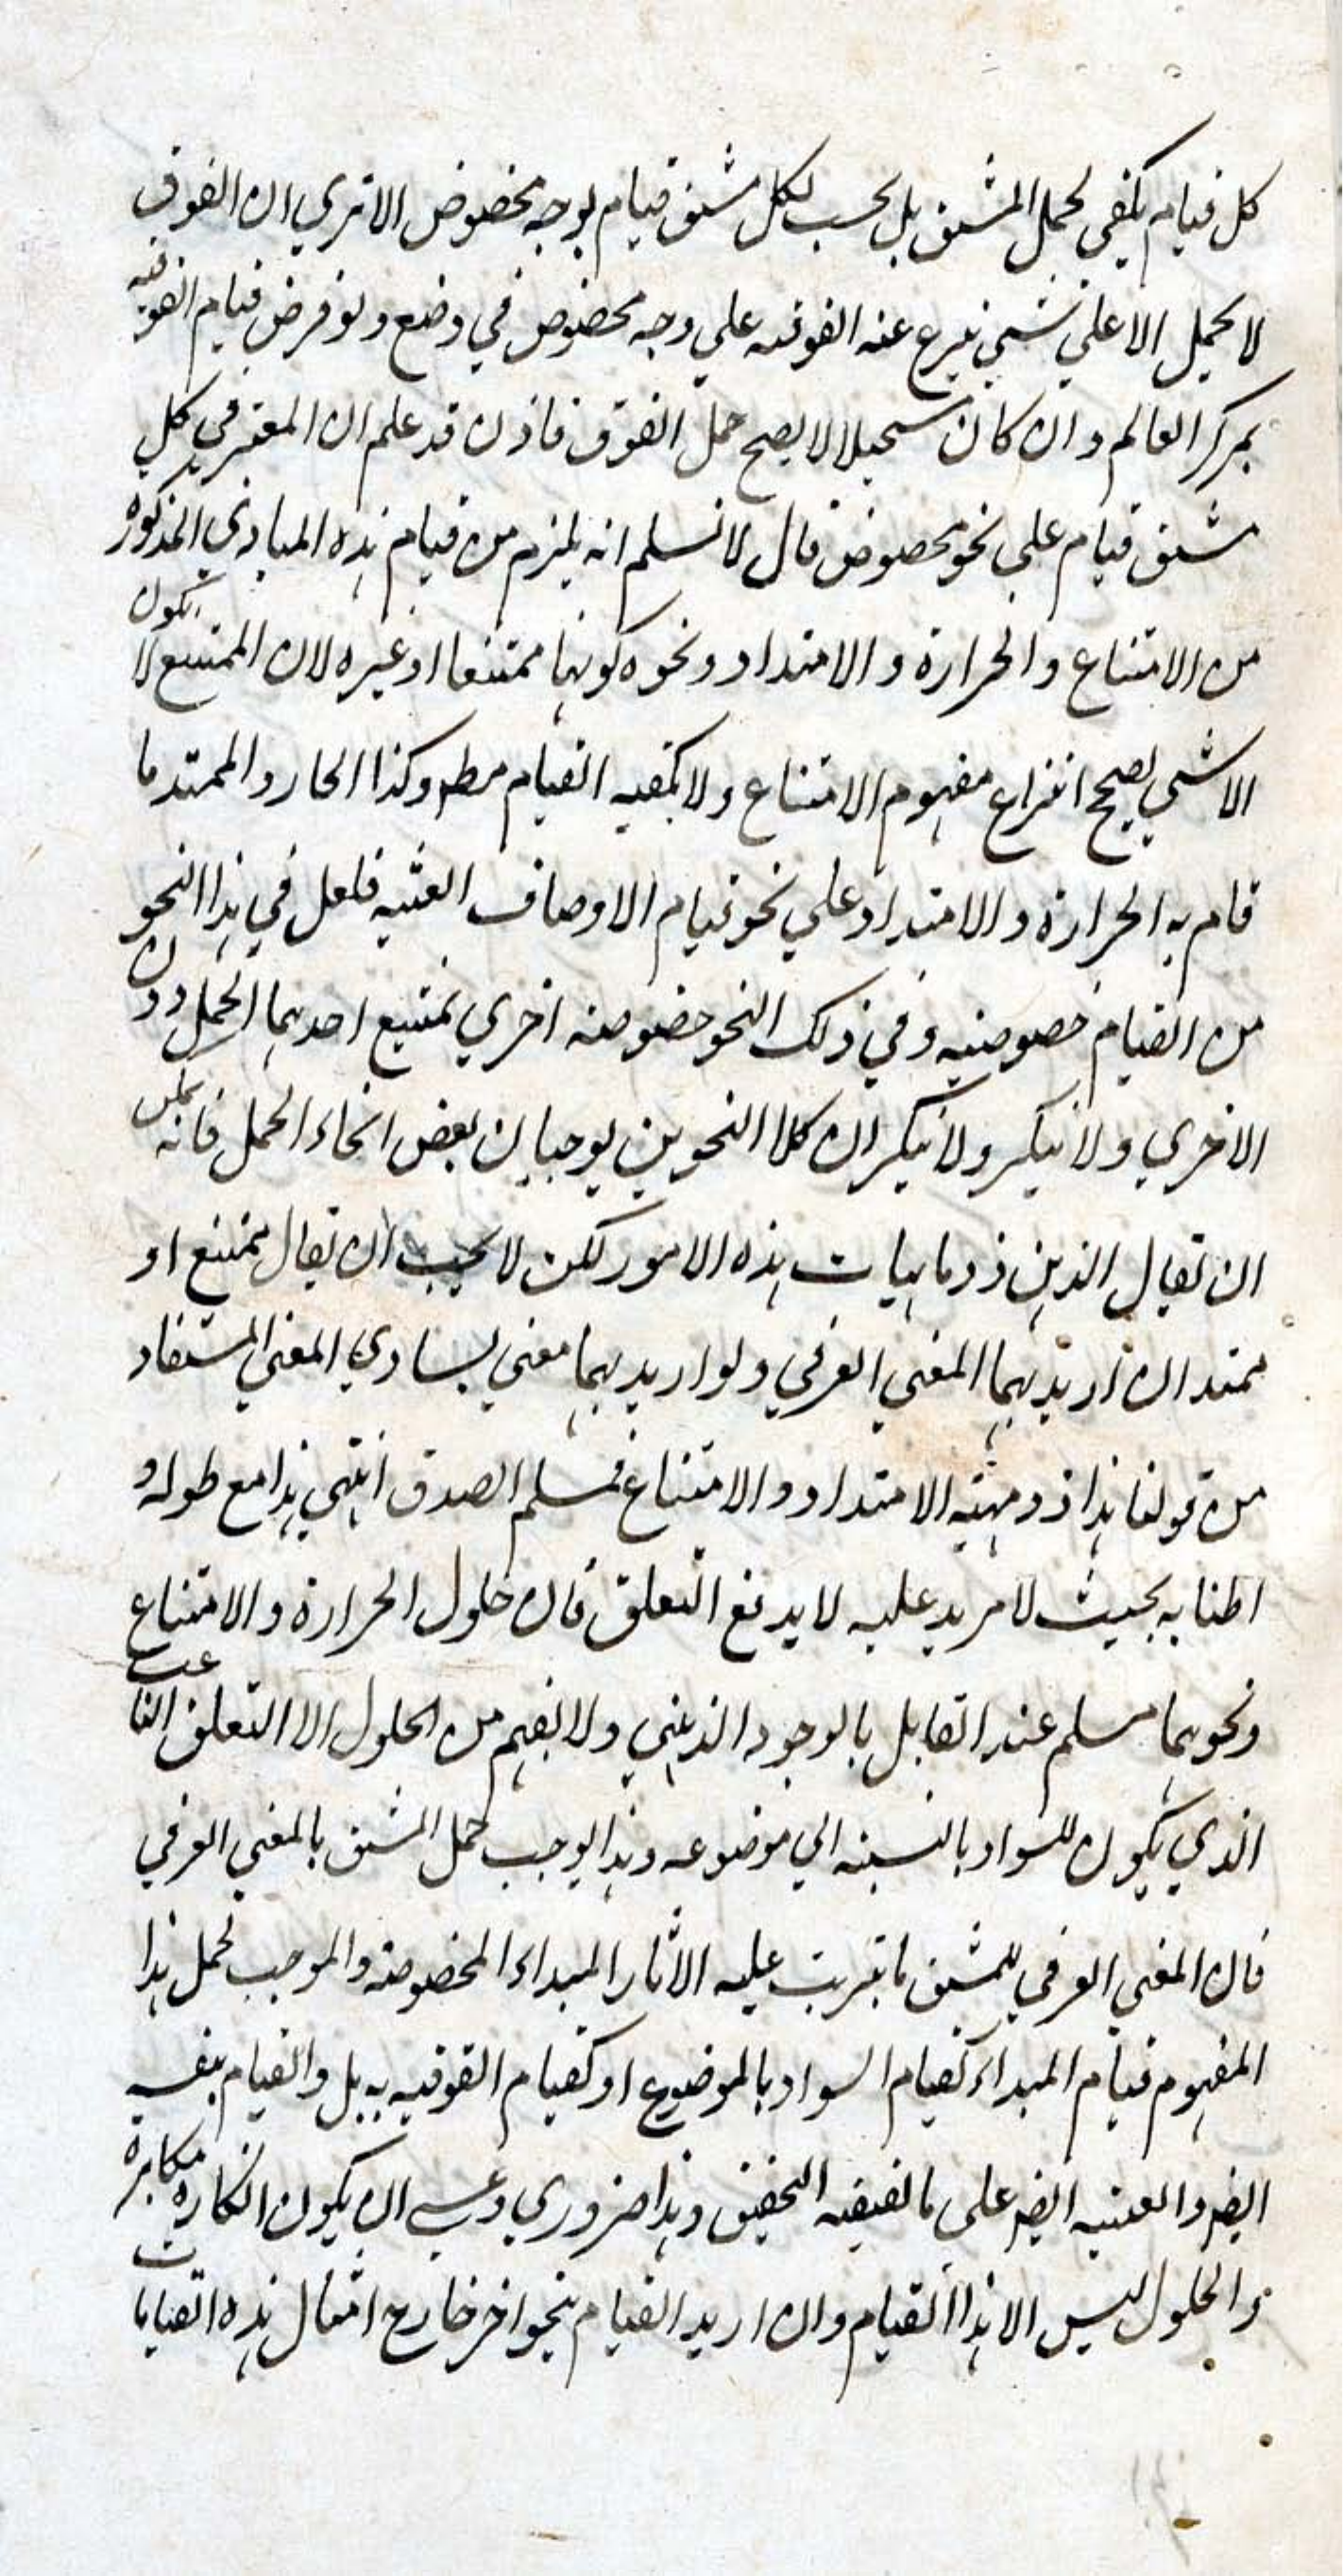 كل قيام يكفي لحمل المشتق بل يحسب لكل مشتق قيام بوجه مخصوص الا تري ان الفوق
لا يحمل الا علي شيئ ينزع عنه الفوقيه علي وجه مخصوص في وضع ولو فرض قيام الفوقيه
بمركز العالم وان كان مستحيلا لا يصح حمل الفوق فاذن قد علم ان المعتبر في كل
مشتق قيام علي نحو مخصوص قال لا نسلم انه يلزم من قيام هذه المبادي المذكوره
من الامتناع والحرارة والامتداد ونحوه كونها ممتنعا او غيره لان الممتنع لا يكون
الا شيئ يصح انتزاع مفهوم الامتناع ولا يكفيه القيام مطم وكذا الحار والممتد ما
قام به الحرارة والامتداد علي نحو قيام الاوصاف العينيه فلعل في هذا النحو
من القيام خصوصيه وفي ذلك النحو خصوصيه اخري يمتنع احدهما الحمل دون
الاخري ولا ينكر ولا ينكر ان كلا النحوين يوجبان بعض انحاء الحمل فانه يمكن
ان تقال الذهن ذو ماهيات هذه الامور لكن لا يجب ان يقال ممتنع او
ممتد ان اريد بهما المعني العرفي ولو اريد بهما معني يساوي المعني المستفاد
من قولنا هذا ذو مهيته الامتداد والامتناع فمسلم الصدق انتهي هذا مع طوله و
اطنابه بحيث لا مزيد عليه لا يدفع التعلق فان حلول الحرارة والامتناع
ونحوهما مسلم عند القايل بالوجود الذهني ولا يفهم من الحلول الا التعلق الناعت
الذي يكون للسواد بالنسبته الي موضوعه وهذا يوجب حمل المشتق بالمعني العرفي
فان المعني العرفي للمشتق ما يترتب عليه الاثار المبداء المخصوصته والموجب لحمل هذا
المفهوم قيام المبداء كقيام السواد بالموضوع او كقيام الفوقيه به بل والقيام بنفسه
ايضم والعينيه ايضم علي ما يقتضيه التحقيق وهذا ضروري وعسي ان يكون انكاره مكابرة
والحلول ليس الا هذا القيام وان اريد القيام بنحو اخر خارج امثال هذه القيامات